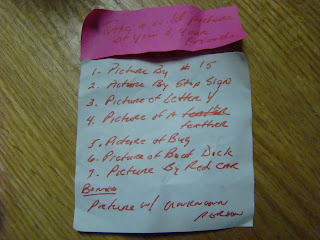 Bring a wild picture
of you & your
friends
1. Picture By # 15
2. Picture By Stop Sign
3. Picture of Letter Y
4. Picture of A
feather
5. Picture of Bug
6. Picture of Boat Dock
7. Picture By Red CAR
Bonus
Picture w/ Unknown
person